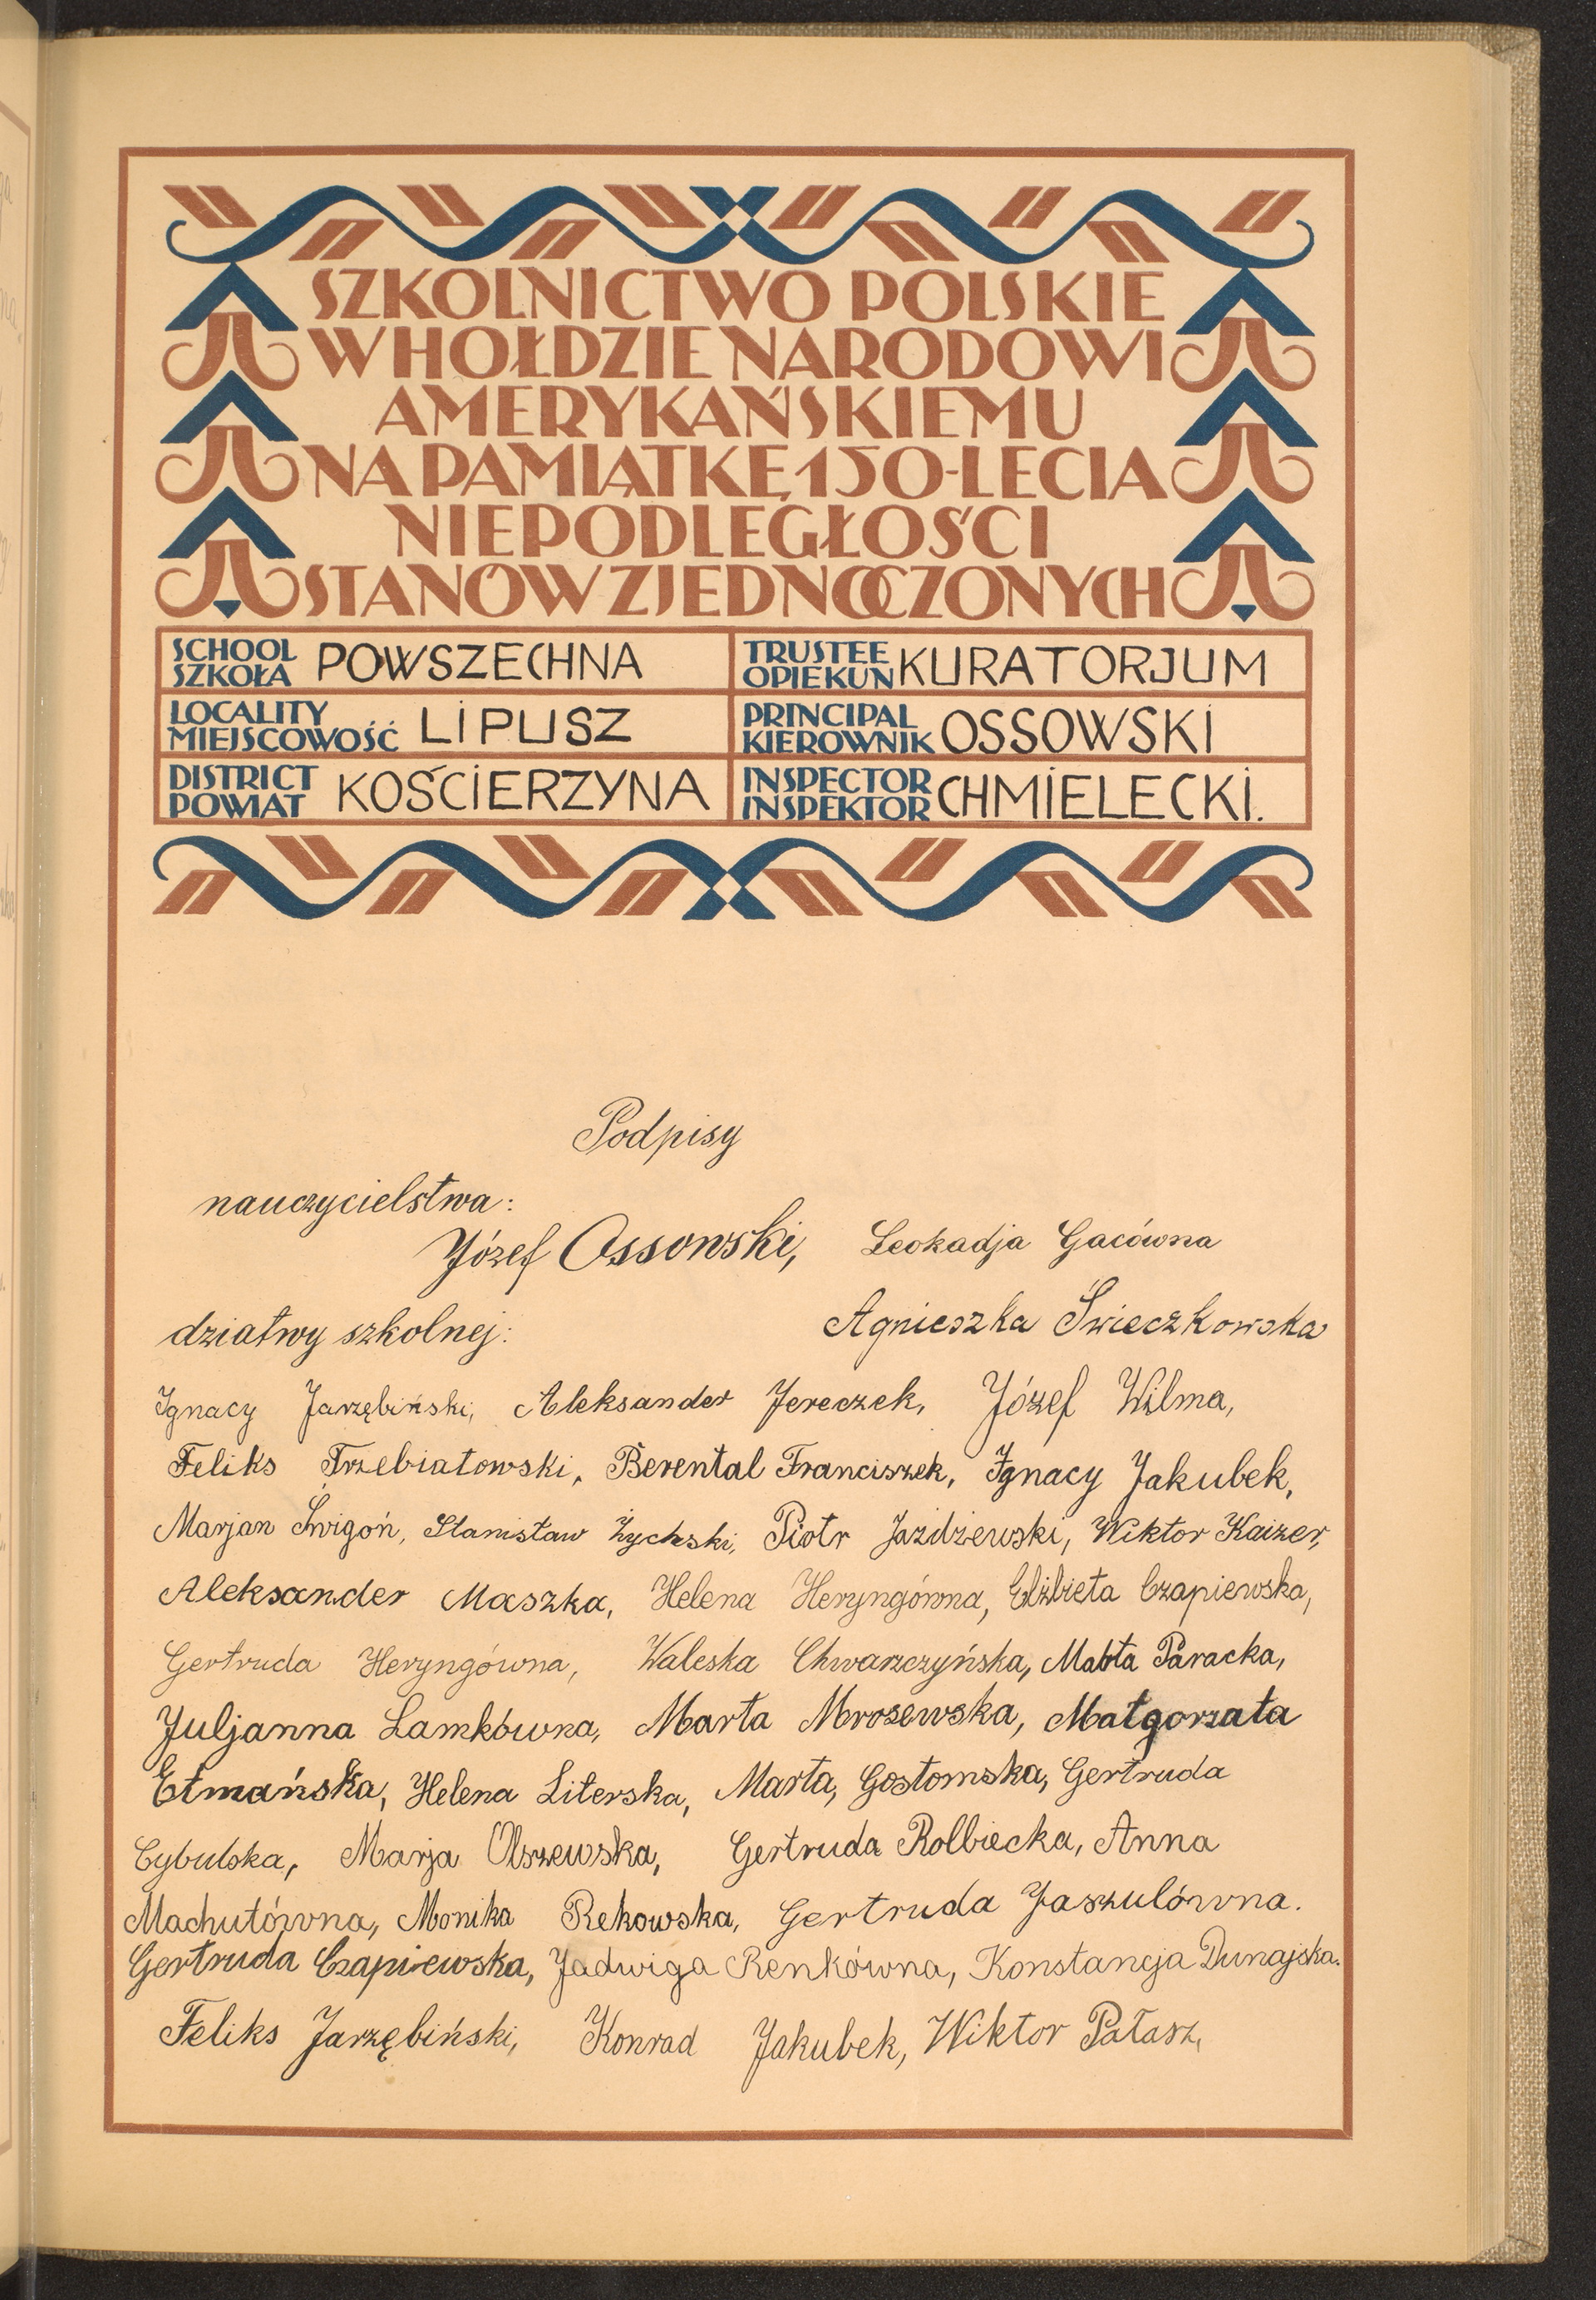 SZKOLNICTWO POLSKIE
W HOŁDZIE NARODOWI
AMERYKAŃSKIEMU
NA PAMIĄTKĘ 150-LECIA
NIEPODLEGŁOŚCI
STANÓW ZJEDNOCZONYCH
SCHOOL
SZKOŁA POWSZECHNA
TRUSTEE
OPIEKUN KURATORJUM
LOCALITY
MIEJSCOWOŚĆ LIPUSZ
PRINCIPAL
KIEROWNIK OSSOWSKI
DISTRICT
POWIAT KOŚCIERZYNA
INSPECTOR
INSPEKTOR CHMIELECKI.
Podpisy
nauczycielstwa:
Józef Ossowski, Leokadja Gacówna
Agnieszka Świeczkowska
dziatwy szkolnej:
Ignacy Jarzębiński, Aleksander Jereczek, Józef Wilma,
Feliks Trzebiatowski, Berental Franciszek, Ignacy Jakubek,
Marjan Świgoń, Stanisław Żychski, Piotr Jażdżewski, Wiktor Kaizer,
Aleksander Maszka, Helena Heryngówna, Elżbieta Czapiewska,
Gertruda Heryngówna, Waleska Chwarzczyńska, Paracka,
Juljanna Lamkówna, Marta Mrosewska, Małgorzata
Etmańska, Helena Literska, Marta, Gostomska, Gertruda
Cybulska, Marja Olszewska, Gertruda Rolbiecka, Anna
Machutówna, Monika Rekowska, Gertruda Jaszulówna.
Gertruda Czapiewska, Jadwiga Renkówna, Konstancja Dunajska.
Feliks Jarzębiński, Konrad Jakubek, Wiktor Pałasz,